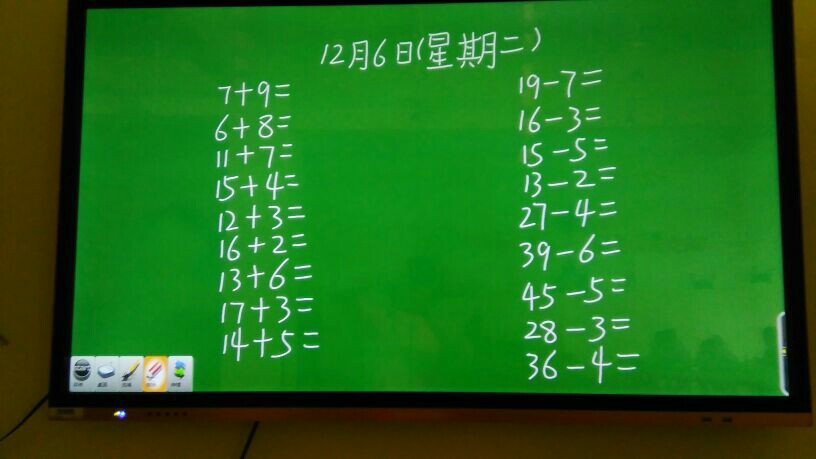 12月6日(星期二)
7+9=
6+8=
11+7=
15+4=
12+3=
16+2=
13+6=
17+3=
14+5=
19-7=
16-3=
15-5=
13-2=
27-4=
39-6=
45-5=
28-3=
36-4=